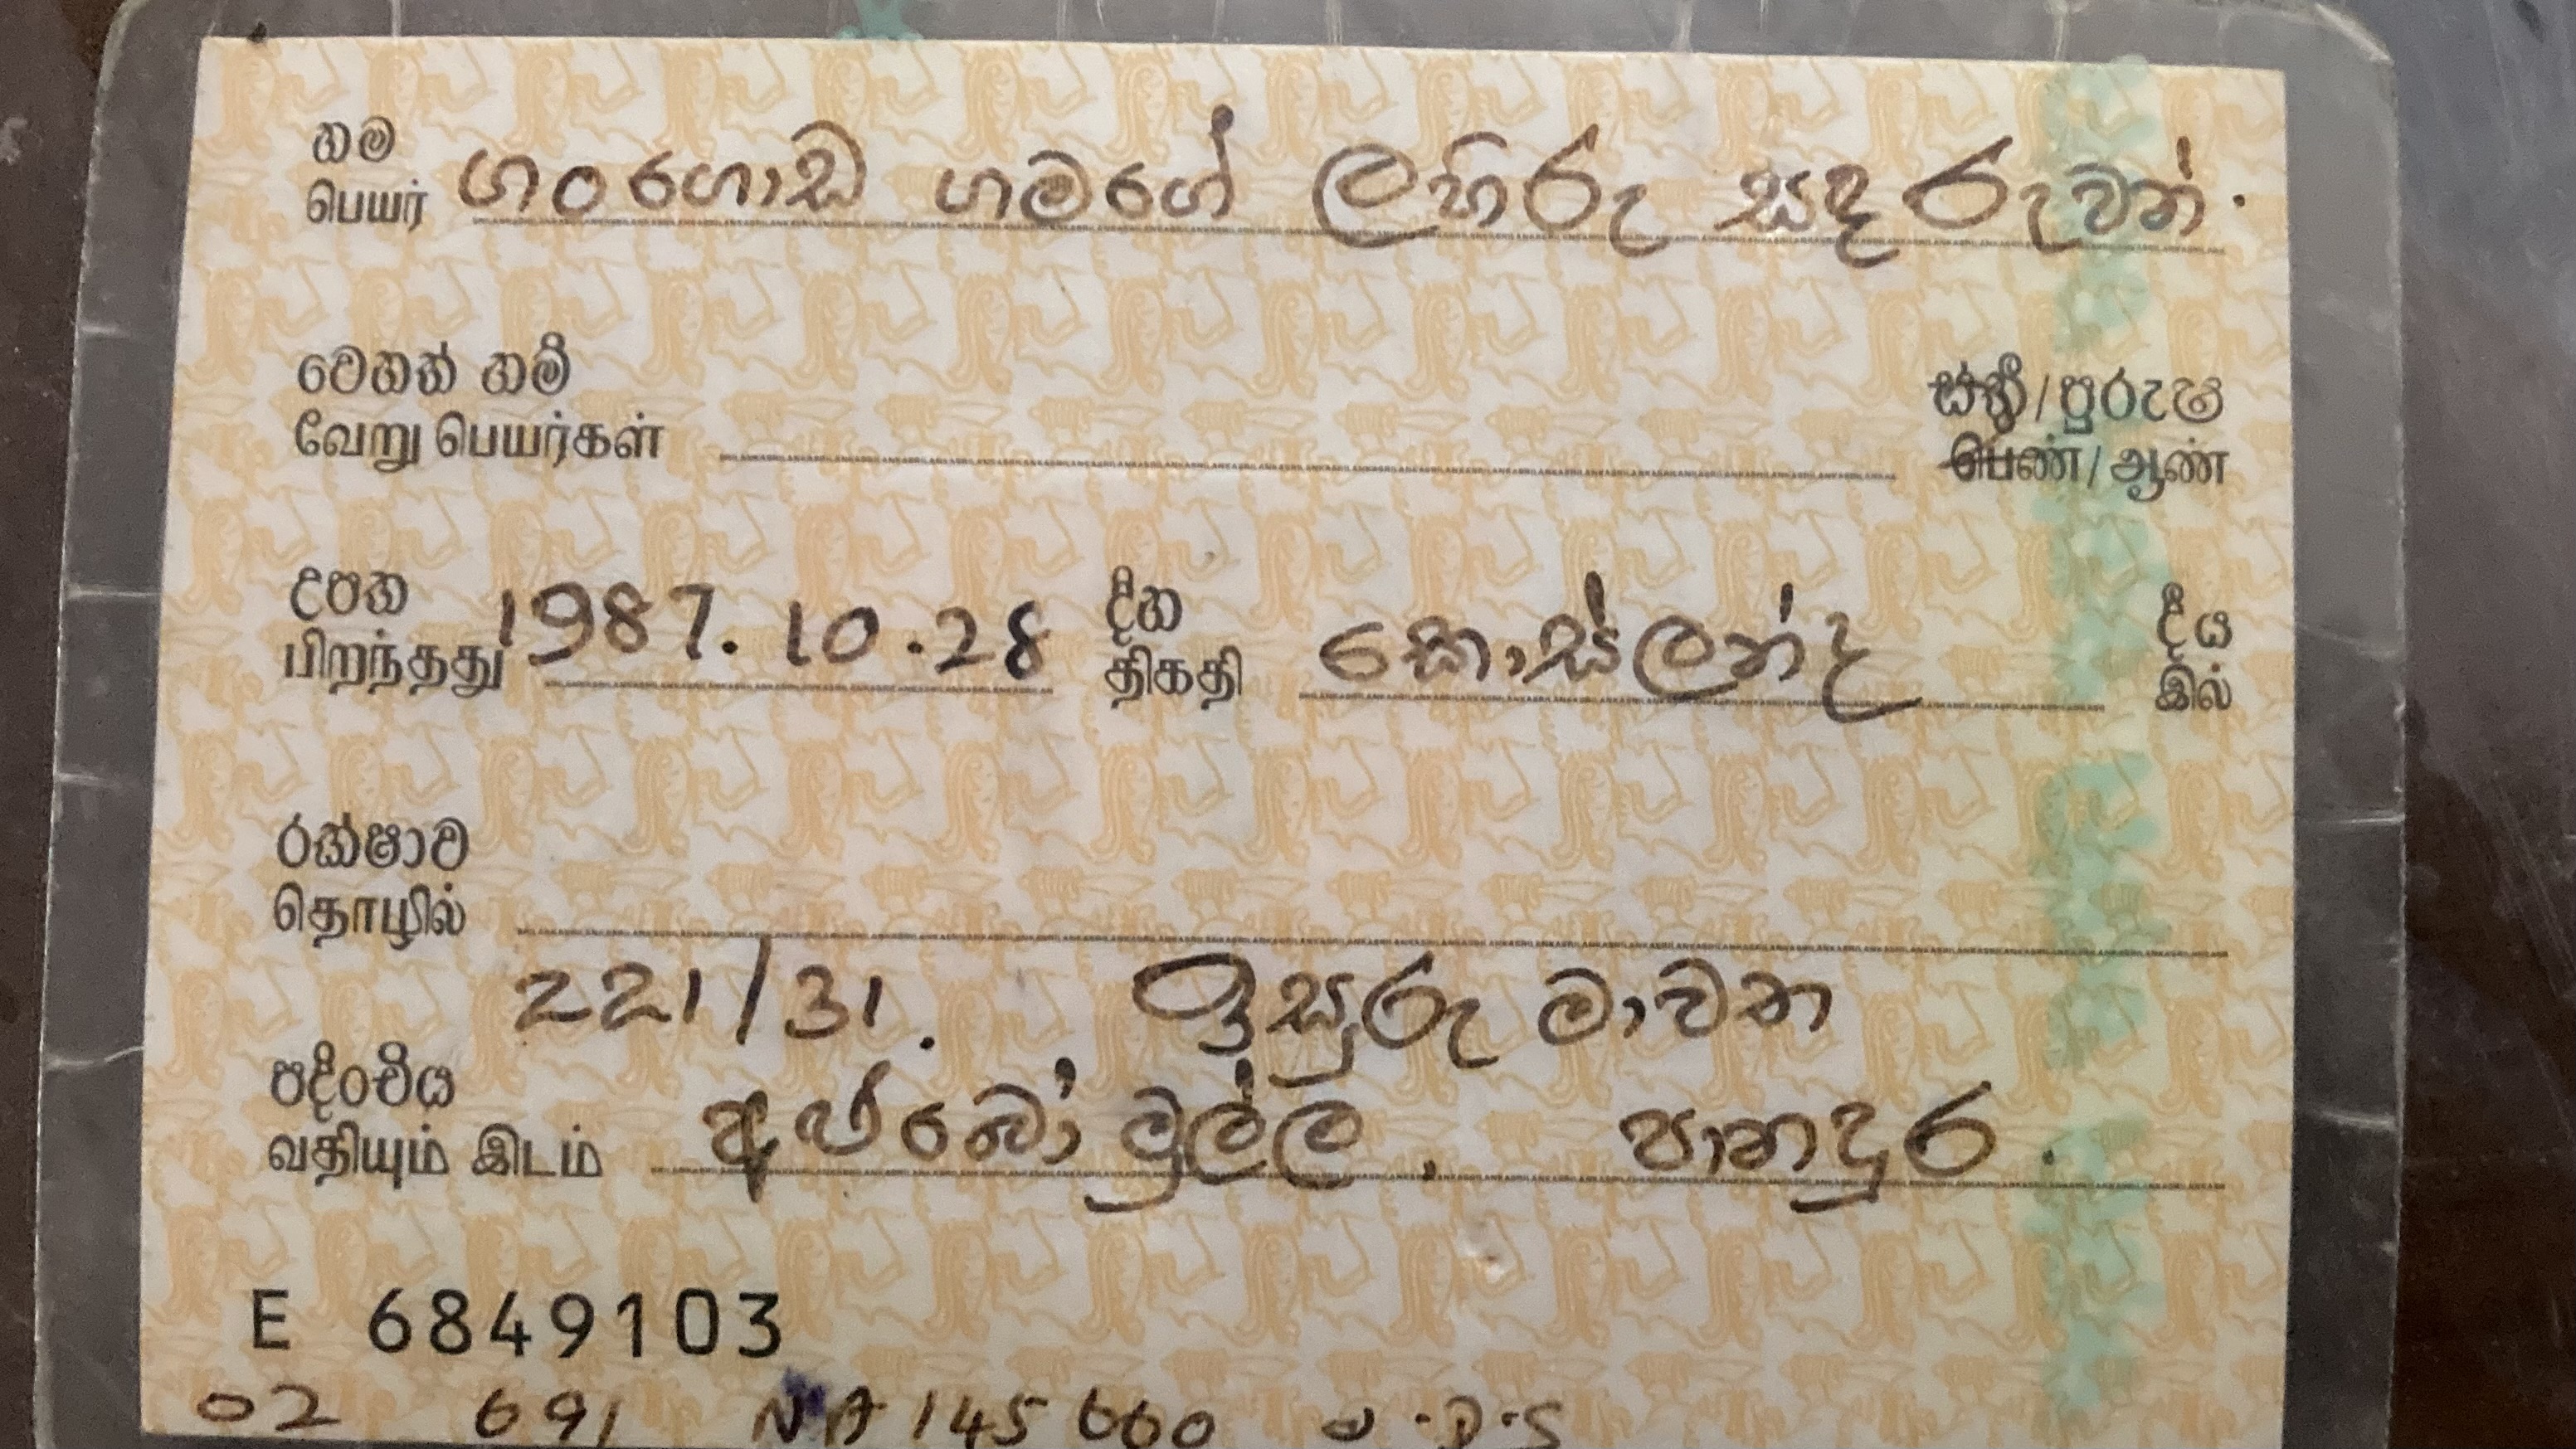 නම ගංගොඩ ගමගේ ලහිරු සදරුවන්.
பெயர்
වෙනත් නම් ස්ත්‍රී/පුරුෂ
வேறு பெயர்கள் பெண்/ஆண்
උපන 1987.10.28 දින කොස්ලන්ද දීය
பிறந்தது திகதி இல்
රක්ෂාව
தொழில்
221/31. ඉසුරු මාවත
පදිංචිය
வதியும் இடம் මුල්ල. පානදුර.
E 6849103
02 691 NA 145660